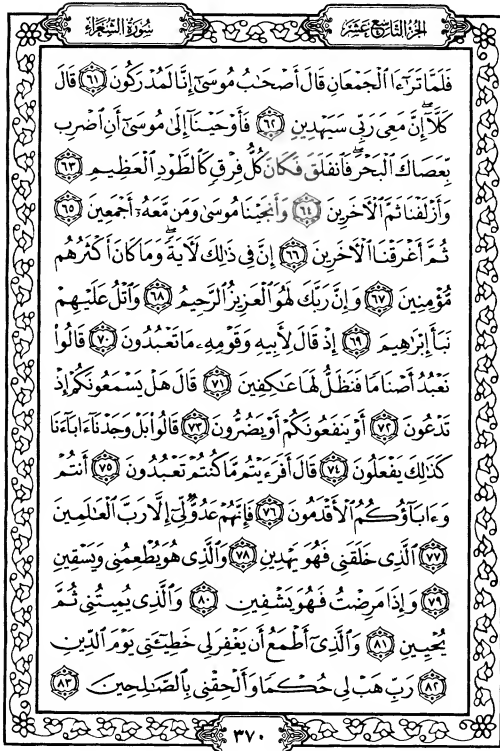 سُورَةُ الشُّعَرَاءِ
الجُزْءُ التَّاسِعُ عَشَرَ
فَلَمَّا تَرَٰٓءَا ٱلْجَمْعَانِ قَالَ أَصْحَٰبُ مُوسَىٰٓ إِنَّا لَمُدْرَكُونَ ٦١ قَالَ
كَلَّآۖ إِنَّ مَعِىَ رَبِّى سَيَهْدِينِ ٦٢ فَأَوْحَيْنَآ إِلَىٰ مُوسَىٰٓ أَنِ ٱضْرِب
بِّعَصَاكَ ٱلْبَحْرَۖ فَٱنفَلَقَ فَكَانَ كُلُّ فِرْقٍ كَٱلطَّوْدِ ٱلْعَظِيمِ ٦٣
وَأَزْلَفْنَا ثَمَّ ٱلْءَاخَرِينَ ٦٤ وَأَنجَيْنَا مُوسَىٰ وَمَن مَّعَهُۥٓ أَجْمَعِينَ ٦٥
ثُمَّ أَغْرَقْنَا ٱلْءَاخَرِينَ ٦٦ إِنَّ فِى ذَٰلِكَ لَءَايَةًۖ وَمَا كَانَ أَكْثَرُهُم
مُّؤْمِنِينَ ٦٧ وَإِنَّ رَبَّكَ لَهُوَ ٱلْعَزِيزُ ٱلرَّحِيمُ ٦٨ وَٱتْلُ عَلَيْهِمْ
نَبَأَ إِبْرَٰهِيمَ ٦٩ إِذْ قَالَ لِأَبِيهِ وَقَوْمِهِۦ مَا تَعْبُدُونَ ٧٠ قَالُوا۟
نَعْبُدُ أَصْنَامًا فَنَظَلُّ لَهَا عَٰكِفِينَ ٧١ قَالَ هَلْ يَسْمَعُونَكُمْ إِذْ
تَدْعُونَ ٧٢ أَوْ يَنفَعُونَكُمْ أَوْ يَضُرُّونَ ٧٣ قَالُوا۟ بَلْ وَجَدْنَآ ءَابَآءَنَا
كَذَٰلِكَ يَفْعَلُونَ ٧٤ قَالَ أَفَرَءَيْتُم مَّا كُنتُمْ تَعْبُدُونَ ٧٥ أَنتُمْ
وَءَابَآؤُكُمُ ٱلْأَقْدَمُونَ ٧٦ فَإِنَّهُمْ عَدُوٌّ لِّىٓ إِلَّا رَبَّ ٱلْعَٰلَمِينَ
٧٧ ٱلَّذِى خَلَقَنِى فَهُوَ يَهْدِينِ ٧٨ وَٱلَّذِى هُوَ يُطْعِمُنِى وَيَسْقِينِ
٧٩ وَإِذَا مَرِضْتُ فَهُوَ يَشْفِينِ ٨٠ وَٱلَّذِى يُمِيتُنِى ثُمَّ
يُحْيِينِ ٨١ وَٱلَّذِىٓ أَطْمَعُ أَن يَغْفِرَ لِى خَطِيٓـَٔتِى يَوْمَ ٱلدِّينِ
٨٢ رَبِّ هَبْ لِى حُكْمًا وَأَلْحِقْنِى بِٱلصَّٰلِحِينَ ٨٣
٣٧٠